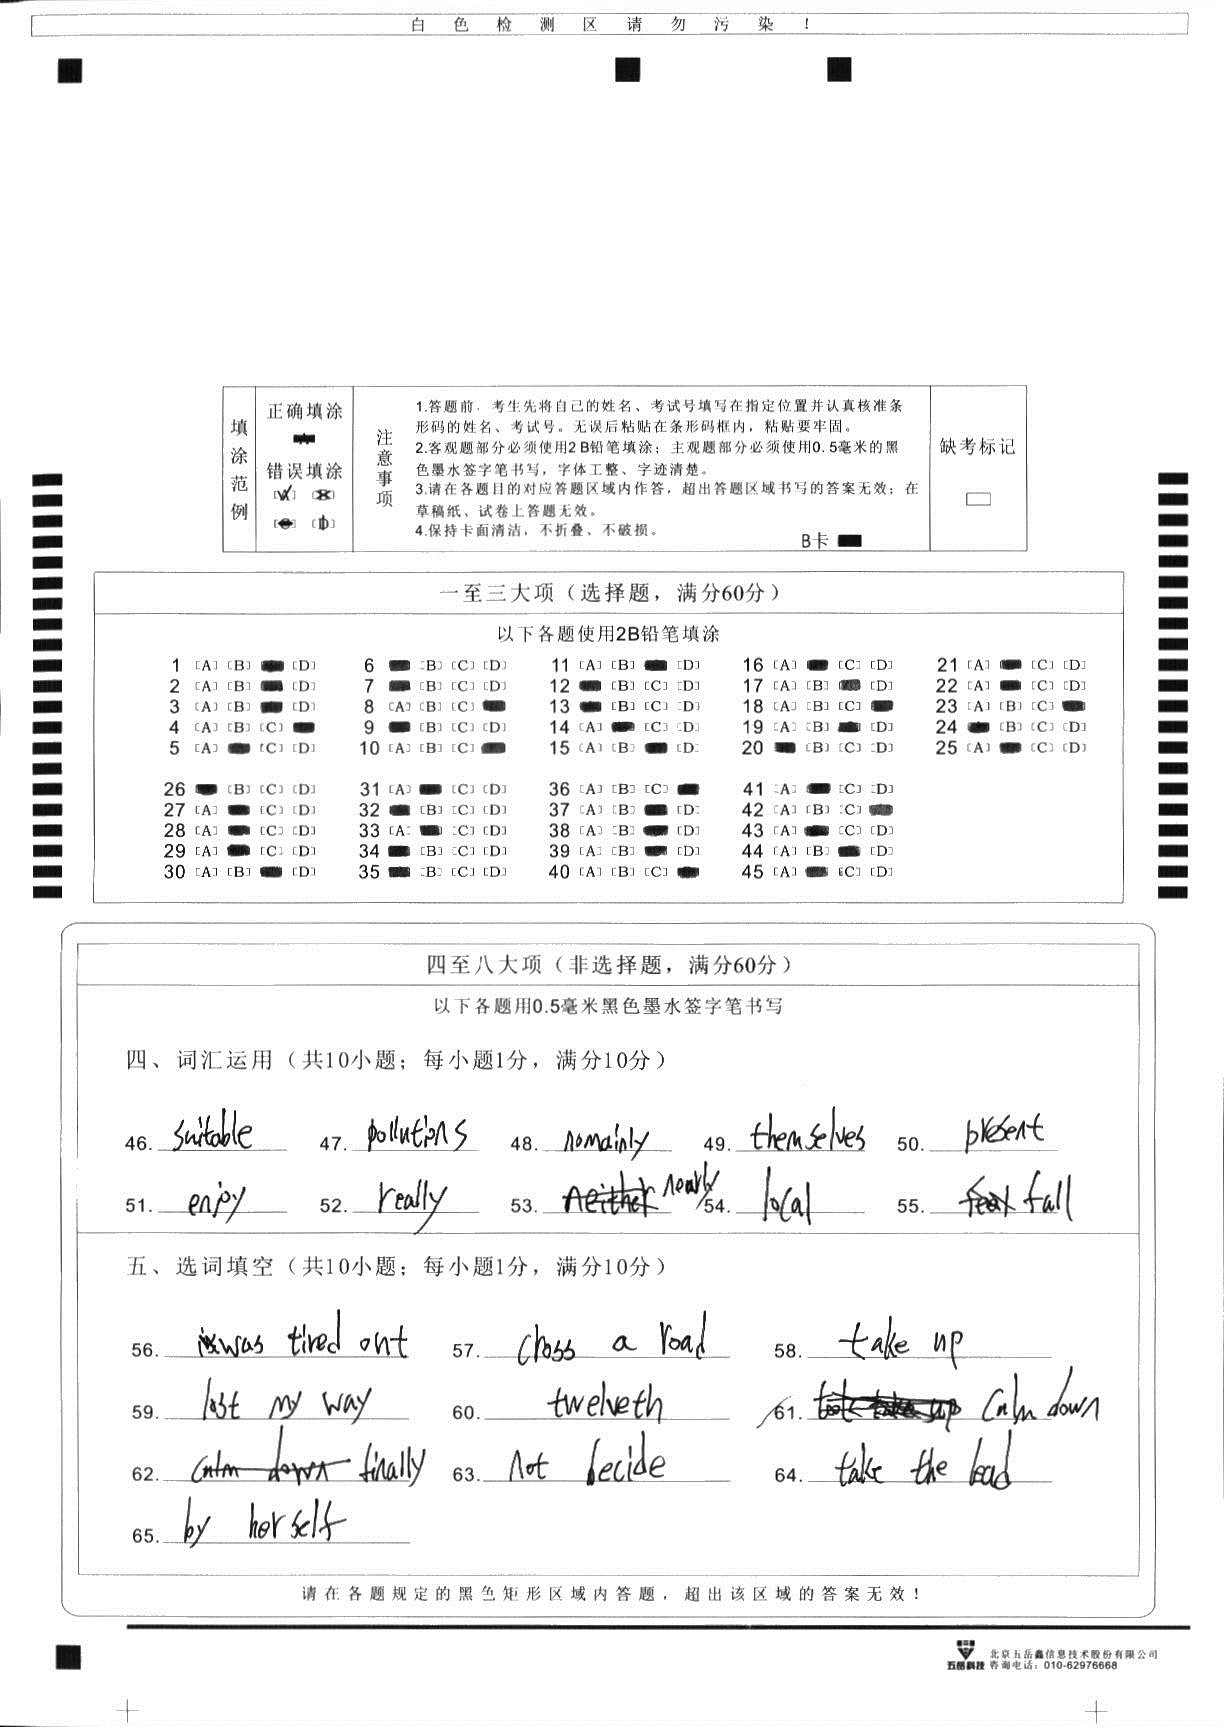 白色检测区请勿污染！
填涂范例
正确填涂
错误填涂
注意事项
1.答题前，考生先将自己的姓名、考试号填写在指定位置并认真核准条
形码的姓名、考试号。无误后粘贴在条形码框内，粘贴要牢固。
2.客观题部分必须使用2B铅笔填涂；主观题部分必须使用0.5毫米的黑
色墨水签字笔书写，字体工整、字迹清楚。
3.请在各题目的对应答题区域内作答，超出答题区域书写的答案无效；在
草稿纸、试卷上答题无效。
4.保持卡面清洁，不折叠、不破损。
B卡
缺考标记
一至三大项（选择题，满分60分）
以下各题使用2B铅笔填涂
1 [A] [B] [D] 6 [B] [C] [D] 11 [A] [B] [D] 16 [A] [C] [D] 21 [A] [C] [D]
2 [A] [B] [D] 7 [B] [C] [D] 12 [B] [C] [D] 17 [A] [B] [D] 22 [A] [C] [D]
3 [A] [B] [D] 8 [A] [B] [C] 13 [B] [C] [D] 18 [A] [B] [C] 23 [A] [B] [C]
4 [A] [B] [C] 9 [B] [C] [D] 14 [A] [C] [D] 19 [A] [B] [D] 24 [B] [C] [D]
5 [A] [C] [D] 10 [A] [B] [C] 15 [A] [B] [D] 20 [B] [C] [D] 25 [A] [C] [D]
26 [B] [C] [D] 31 [A] [C] [D] 36 [A] [B] [C] 41 [A] [C] [D]
27 [A] [C] [D] 32 [B] [C] [D] 37 [A] [B] [D] 42 [A] [B] [C]
28 [A] [C] [D] 33 [A] [C] [D] 38 [A] [B] [D] 43 [A] [C] [D]
29 [A] [C] [D] 34 [B] [C] [D] 39 [A] [B] [D] 44 [A] [B] [D]
30 [A] [B] [D] 35 [B] [C] [D] 40 [A] [B] [C] 45 [A] [C] [D]
四至八大项（非选择题，满分60分）
以下各题用0.5毫米黑色墨水签字笔书写
四、词汇运用（共10小题；每小题1分，满分10分）
46. suitable 47. pollutions 48. nomainly 49. themselves 50. present
51. enjoy 52. really 53. neither nearly 54. local 55. fall
五、选词填空（共10小题；每小题1分，满分10分）
56. was tired out 57. cross a road 58. take up
59. lost my way 60. twelveth 61. calm down
62. calm down finally 63. not decide 64. take the lead
65. by herself
请在各题规定的黑色矩形区域内答题，超出该区域的答案无效！
五岳科技 北京五岳鑫信息技术股份有限公司
咨询电话：010-62976668